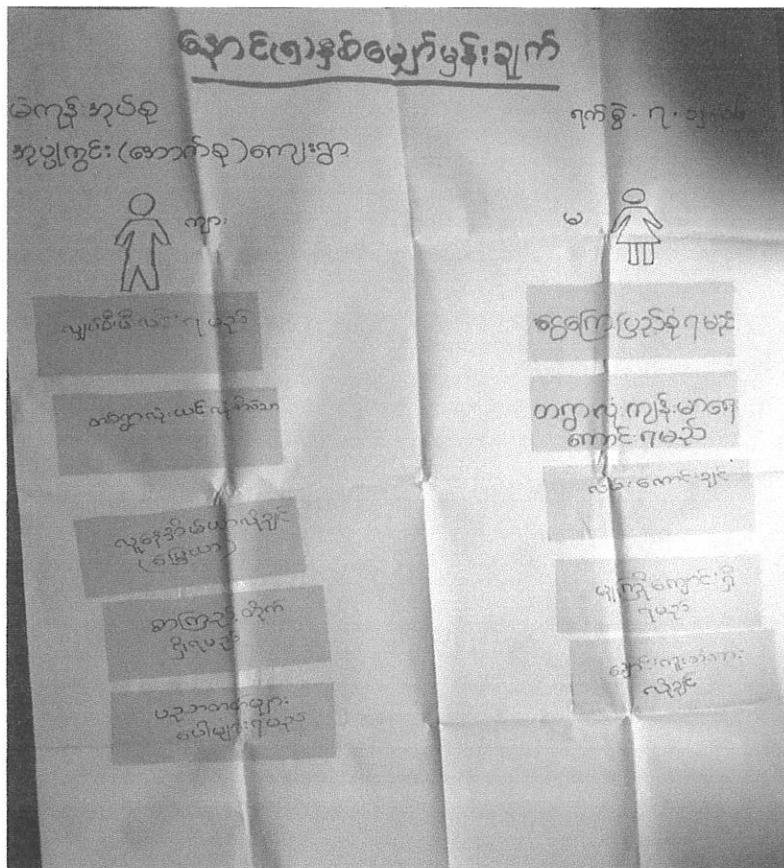 နောင်(၅)နှစ်မျှော်မှန်းချက်
မဲကုန်းအုပ်စု
ရက်စွဲ - ၇.
အုပ်ပုံကွင်း(အောက်စု)ကျေးရွာ
ကျား
မ
လျှပ်စစ်မီးလင်းရမည်
တစ်ရွာလုံးယင်လုံအိမ်သာ
လူနေအိမ်ယာလိုချင်
(မြေယာ)
စာကြည့်တိုက်
ရှိရမည်
ပညာတတ်များ
ပေါများရမည်
ငွေကြေးပြည့်စုံရမည်
တရွာလုံးကျန်းမာရေး
ကောင်းရမည်
လမ်းကောင်းချင်
မူကြိုကျောင်းရှိ
ရမည်
ချောင်းကူးတံတား
လိုချင်